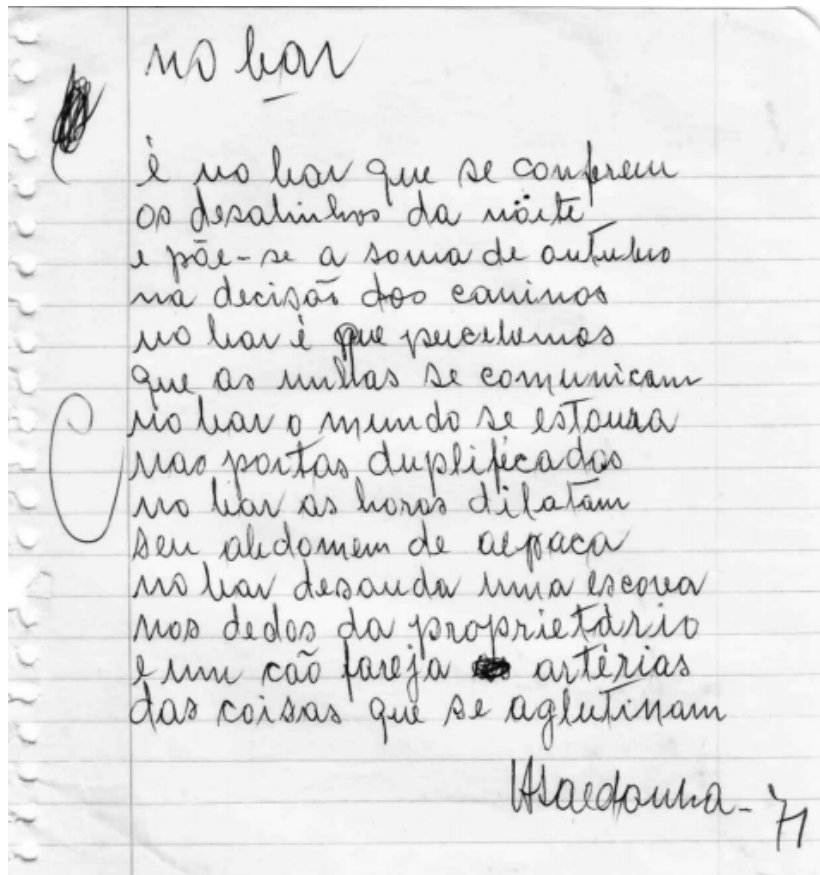 no bar
é no bar que se conferem
os desalinhos da nöite
e põe-se a soma de outubro
na decisão dos caninos
no bar é que percebemos
que as unhas se comunicam
no bar o mundo se estoura
nas portas duplificadas
no bar as horas dilatam
seu abdomem de alpaca
no bar desanda uma escova
nos dedos da proprietário
e um cão fareja artérias
das coisas que se aglutinam
HSaldanha - '71